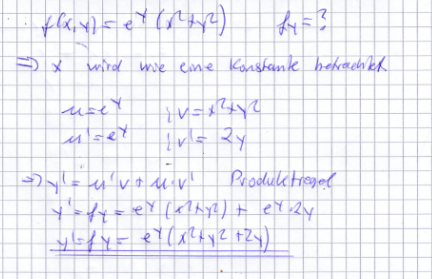 f(x,y) = e^y (x²+y²) fy = ?
⇒ x wird wie eine Konstante betrachtet
u = e^y ; v = x²+y²
u' = e^y ; v' = 2y
⇒ y' = u'v + u·v' Produktregel
y' = fy = e^y (x²+y²) + e^y·2y
y' = fy = e^y (x²+y²+2y)